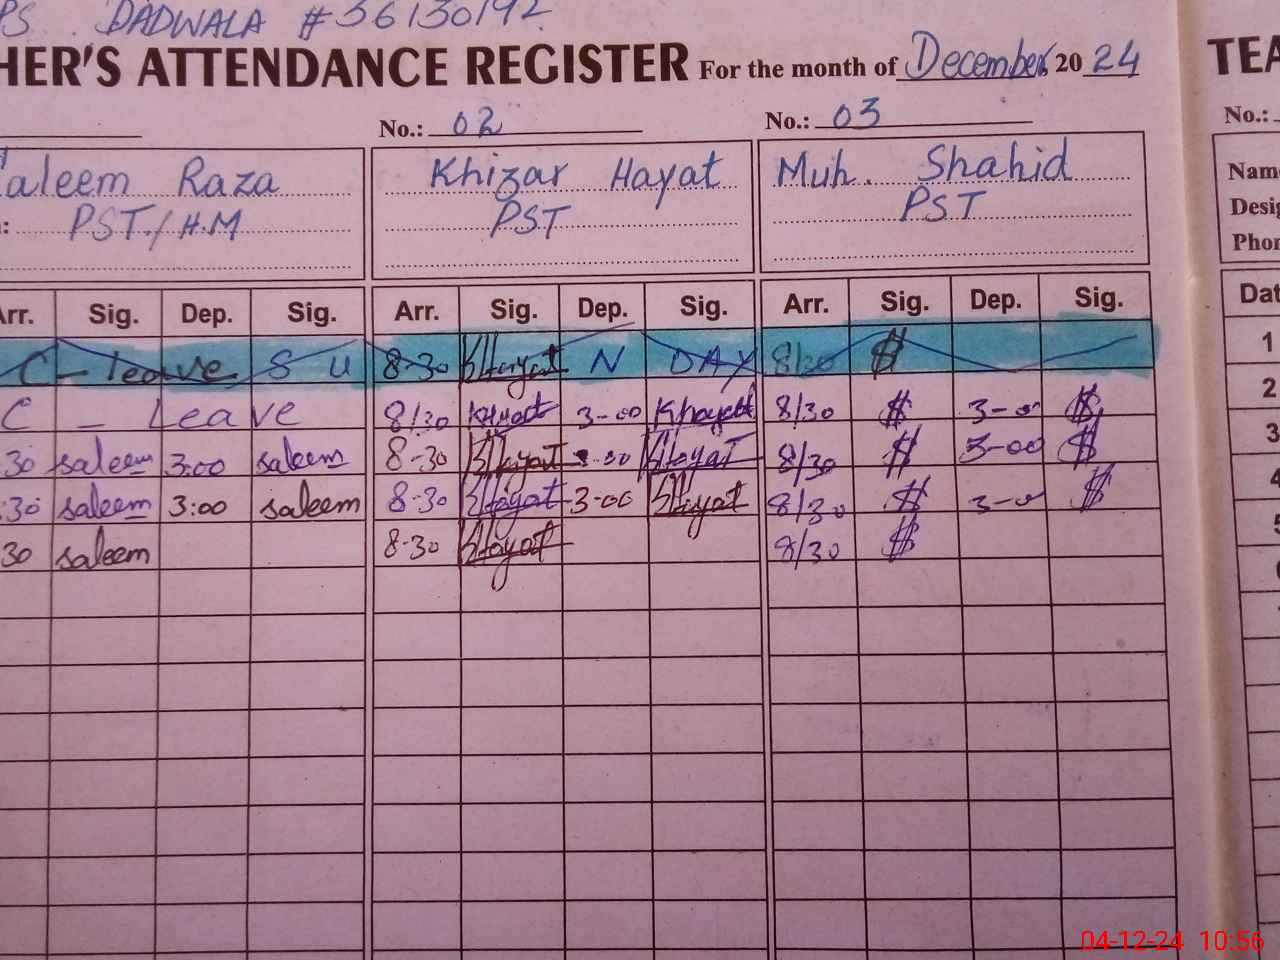 PS. DADWALA #36130192
HER'S ATTENDANCE REGISTER For the month of December, 20 24
TEA
No.: 02
No.: 03
No.:
aleem Raza
Khizar Hayat
Muh. Shahid
Name
: PST./H.M
PST
PST
Desig
Phon
Arr. Sig. Dep. Sig. Arr. Sig. Dep. Sig. Arr. Sig. Dep. Sig. Dat
C - leave S U 8-30 KHayat N DAY 8/30 $ 1
C - Leave 8/30 KHayat 3-00 Khayat 8/30 $ 3-00 $ 2
30 saleem 3:00 saleem 8-30 KHayat 3-00 KHayat 8/30 $ 3-00 $ 3
:30 saleem 3:00 saleem 8-30 KHayat 3-00 KHayat 8/30 $ 3-00 $ 4
30 saleem 8-30 KHayat 8/30 $ 5
04-12-24 10:56